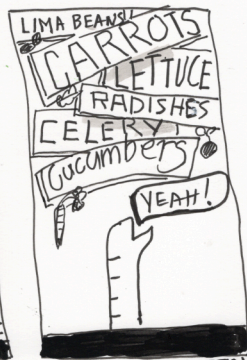 LIMA BEANS!!
CARROTS
LETTUCE
RADISHES
CELERY
Cucumbers
YEAH!